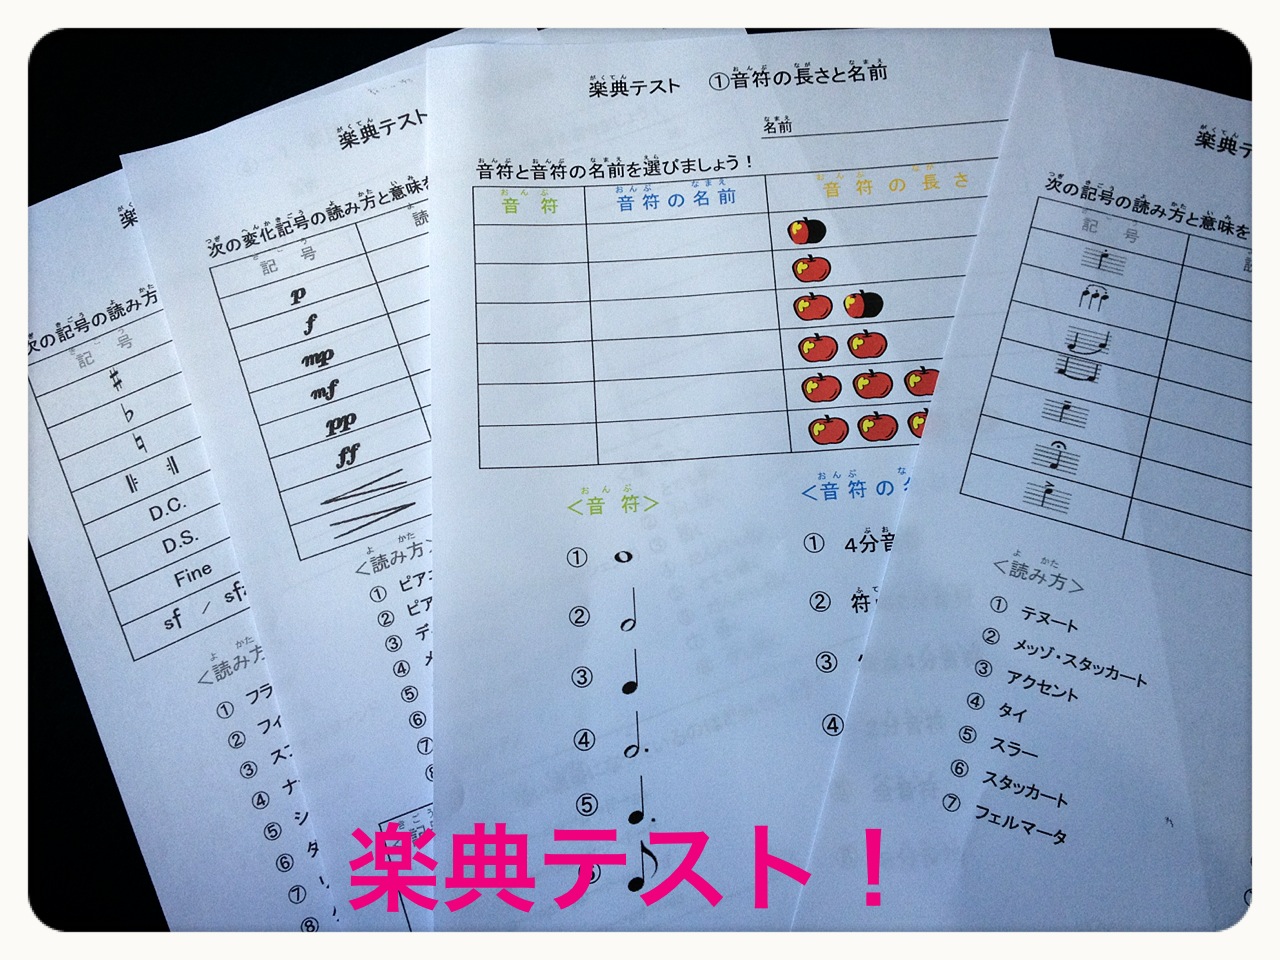 楽典テスト ①音符の長さと名前
名前
音符と音符の名前を選びましょう！
音符 音符の名前 音符の長さ
＜音符＞
①
②
③
④
⑤
＜音符の
① 4分音
② 符
③
④
楽
次の記号の読み方
記号
D.C.
D.S.
Fine
sf / sf
＜読み方
① フラ
② フィ
③ ス
④ ナ
⑤ シ
⑥ ダ
⑦
⑧
楽典テスト
次の変化記号の読み方と意味を
記号 読
p
f
mp
mf
pp
ff
＜読み方＞
① ピア
② ピア
③ デ
④ メ
⑤
⑥
⑦
⑧
楽典テ
次の記号の読み方と意味を
記号
＜読み方＞
① テヌート
② メッゾ・スタッカート
③ アクセント
④ タイ
⑤ スラー
⑥ スタッカート
⑦ フェルマータ
楽典テスト！